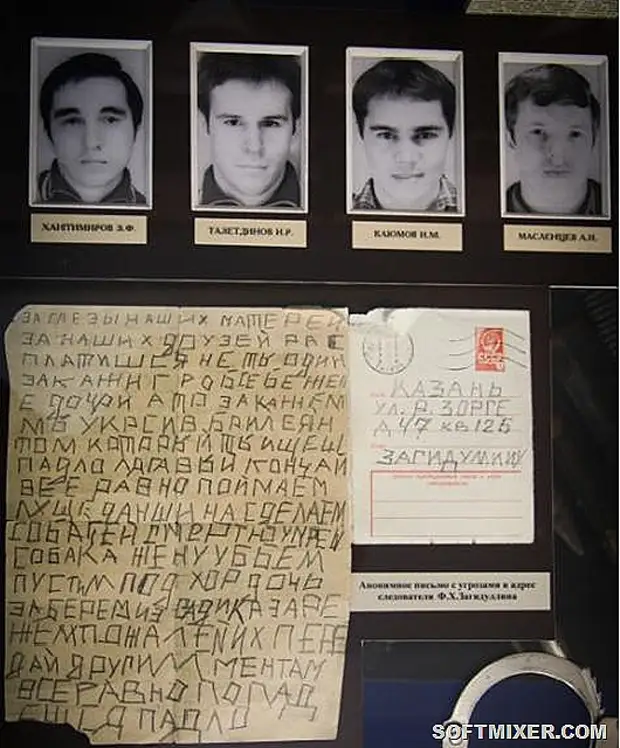 ХАНТИМИРОВ З.Ф.
ТАЗЕТДИНОВ И.Р.
КАЮМОВ И.М.
МАСЛЕНЦЕВ А.Н.
ЗА СЛЕЗЫ НАШИХ МАТЕРЕЙ
ЗА НАШИХ ДРУЗЕЙ РАС
ПЛАТИШСЯ НЕ ТЫ ОДИН
ЗАКАЖИ ГРОБ СЕБЕ ЖЕН
Е ДОЧРИ А ТО ЗАКАЖЕМ
МЫ УКРАСИВ БРИЛЕЯН
ТОМ КОТОРЫЙ ТЫ ИЩЕШ
ПАДЛО ЛЯГАВЫЙ КОНЧАЙ
ВСЕ РАВНО ПОЙМАЕМ
СОБАЧЕЙ СМЕРТЮ УМРЕШ
СОБАКА ЖЕНУ УБЬЕМ
ПУСТИМ ПОД ХОР ДОЧЬ
ЗАБЕРЕМ ИЗ САДИКА ЗАРЕ
ЖЕМ ПОЖАЛЕЙ ИХ ПЕРЕ
ДАЙ ДРУГИМ МЕНТАМ
ВСЕ РАВНО ПОПАД
ЕШСЯ ПАДЛО
КАЗАНЬ
УЛ. Р. ЗОРГЕ
Д 47 КВ 125
ЗАГИДУЛИНУ
Анонимное письмо с угрозами в адрес
следователя Ф.Х.Загидуллина
SOFTMIXER.COM